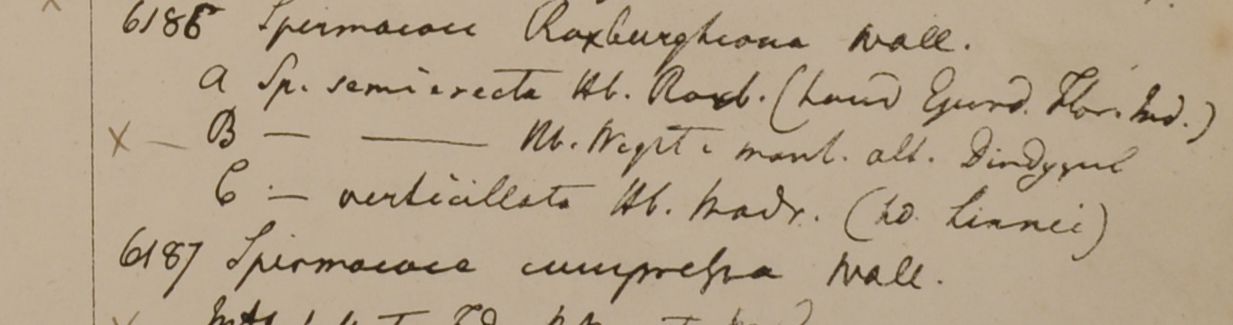 6186 Spermacoce Roxburghiana Wall.
A Sp. semierecta Hb. Roxb. (haud Ejusd. Flor. Ind.)
X — B — —— Hb. Wight e mont. alt. Dindygul
C — verticillata Hb. Madr. (hd. Linnei)
6187 Spermacoce compressa Wall.